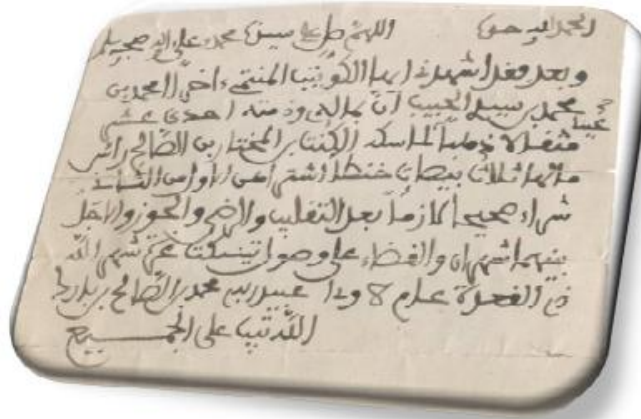 الحمد لله اللهم صل على سيدنا محمد وعلى اله وصحبه وسلم
وبعد فقد اشهدني الكويتب المنتمي المحمد بن
محمد بن سيد الحبيب ان بماله وذمته احدى عشر
مثقالا ذهبا لماسكه الكنتا بن المختار بن الصالح رأس
مالها ثلاث بيصات خنط اشتراهن من الثاني
شراء صحيحا لازما بعد التقليب والرضى والحوز والاجل
بينهما شهران والقضاء على وصول تينبكت شهر الله
ذي القعدة عام 8 عبيد ربه محمد بن الصالح بن
الله تيبا على الجميع